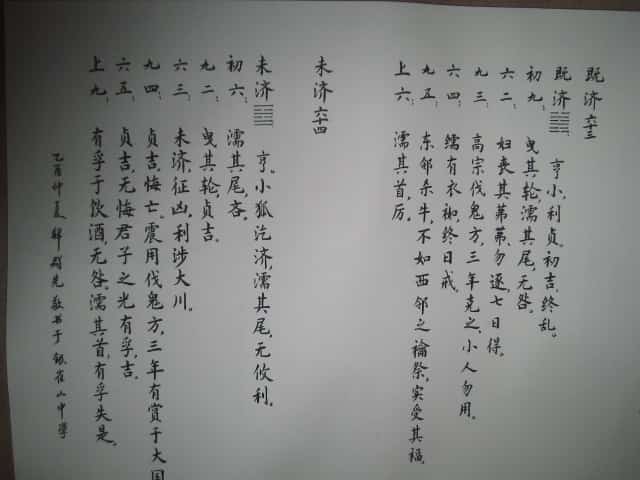 既济 六十三
既济䷾ 亨小,利贞。初吉,终乱。
初九:曳其轮,濡其尾,无咎。
六二:妇丧其茀,勿逐,七日得。
九三:高宗伐鬼方,三年克之,小人勿用。
六四:繻有衣袽,终日戒。
九五:东邻杀牛,不如西邻之禴祭,实受其福。
上六:濡其首,厉。
未济 六十四
未济䷿ 亨。小狐汔济,濡其尾,无攸利。
初六:濡其尾,吝。
九二:曳其轮,贞吉。
六三:未济,征凶,利涉大川。
九四:贞吉,悔亡。震用伐鬼方,三年有赏于大国
六五:贞吉,无悔君子之光有孚,吉。
上九:有孚于饮酒,无咎。濡其首,有孚失是。
乙酉仲夏 敬书于银雀山中学